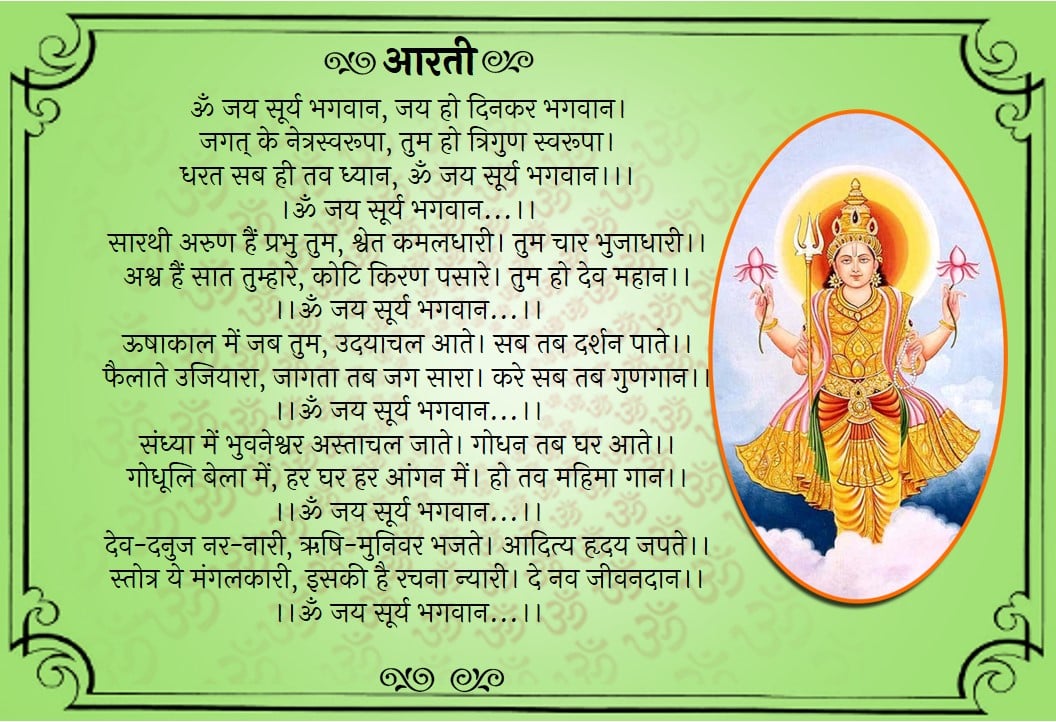 आरती
ॐ जय सूर्य भगवान, जय हो दिनकर भगवान।
जगत् के नेत्रस्वरूपा, तुम हो त्रिगुण स्वरूपा।
धरत सब ही तव ध्यान, ॐ जय सूर्य भगवान।।।
।ॐ जय सूर्य भगवान...।।
सारथी अरुण हैं प्रभु तुम, श्वेत कमलधारी। तुम चार भुजाधारी।।
अश्व हैं सात तुम्हारे, कोटि किरण पसारे। तुम हो देव महान।।
।।ॐ जय सूर्य भगवान...।।
ऊषाकाल में जब तुम, उदयाचल आते। सब तब दर्शन पाते।।
फैलाते उजियारा, जागता तब जग सारा। करे सब तब गुणगान।।
।।ॐ जय सूर्य भगवान...।।
संध्या में भुवनेश्वर अस्ताचल जाते। गोधन तब घर आते।।
गोधूलि बेला में, हर घर हर आंगन में। हो तव महिमा गान।।
।।ॐ जय सूर्य भगवान...।।
देव-दनुज नर-नारी, ऋषि-मुनिवर भजते। आदित्य हृदय जपते।।
स्तोत्र ये मंगलकारी, इसकी है रचना न्यारी। दे नव जीवनदान।।
।।ॐ जय सूर्य भगवान...।।